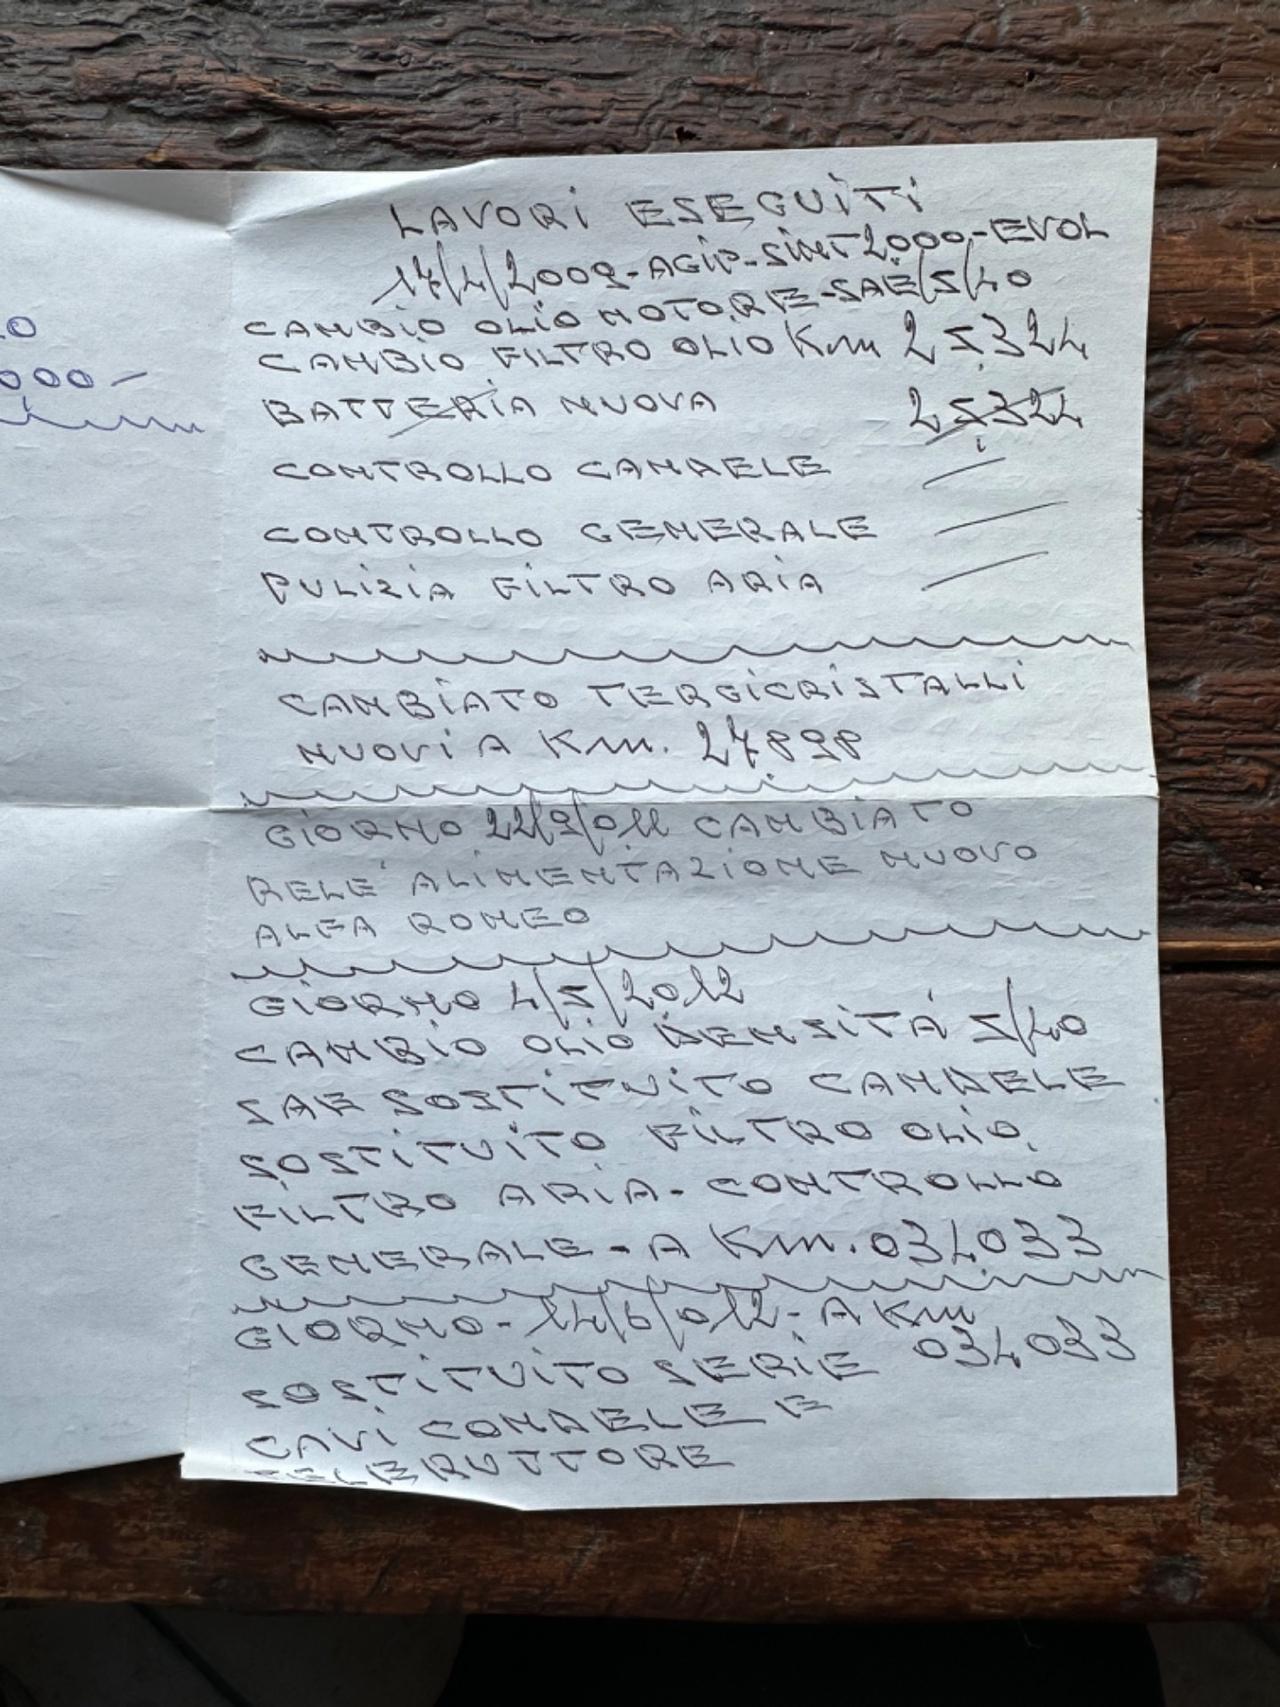 LAVORI ESEGUITI
17/4/2009-AGIP-SINT2000-EVOL
CAMBIO OLIO MOTORE-SAE/5/40
CAMBIO FILTRO OLIO Km 25324
BATTERIA NUOVA 25324
CONTROLLO CANDELE
CONTROLLO GENERALE
PULIZIA FILTRO ARIA
CAMBIATO TERGICRISTALLI
NUOVI A Km. 27898
GIORNO 22/9/011 CAMBIATO
RELE' ALIMENTAZIONE NUOVO
ALFA ROMEO
GIORNO 4/5/2012
CAMBIO OLIO DENSITÁ 5/40
SAE SOSTITUITO CANDELE
SOSTITUITO FILTRO OLIO,
FILTRO ARIA-CONTROLLO
GENERALE-A Km.034033
GIORNO-14/6/012-A Km
SOSTITUITO SERIE 034033
CAVI CONDELE E
TELERUTTORE
0
000-